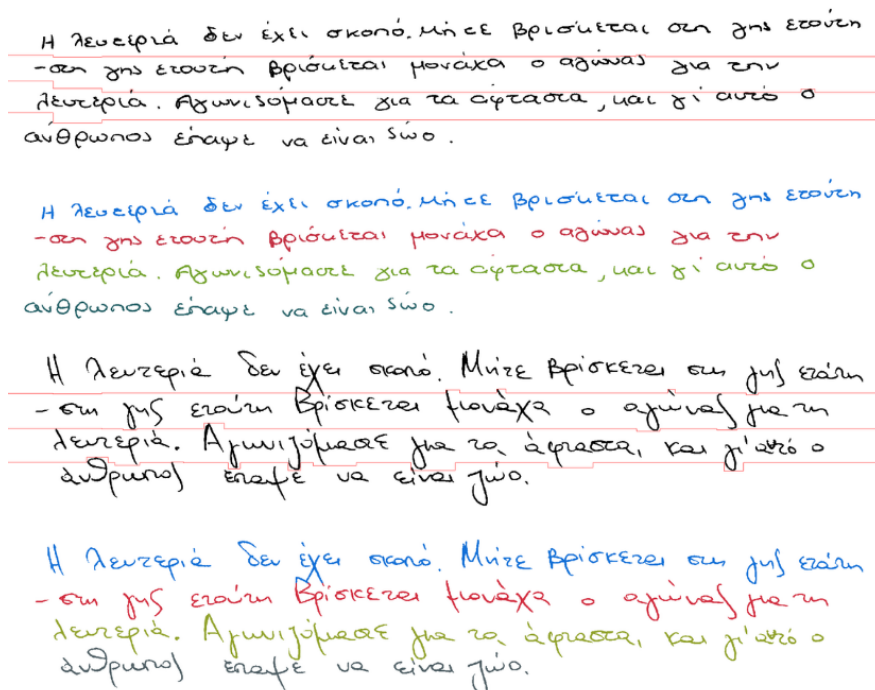 Η λευτεριά δεν έχει σκοπό. Μήτε βρίσκεται στη γης ετούτη
-στη γης ετουτη βρίσκεται μονάχα ο αγώνας για την
λευτεριά. Αγωνιζόμαστε για τα άφταστα, και γι αυτό ο
άνθρωπος έπαψε να είναι ζώο.
Η λευτεριά δεν έχει σκοπό. Μήτε βρίσκεται στη γης ετούτη
-στη γης ετουτη βρίσκεται μονάχα ο αγώνας για την
λευτεριά. Αγωνιζόμαστε για τα άφταστα, και γι αυτό ο
άνθρωπος έπαψε να είναι ζώο.
Η λευτεριά δεν έχει σκοπό. Μήτε βρίσκεται στη γης
- στη γης ετούτη βρίσκεται μονάχα ο αγώνας για τη
λευτεριά. Αγωνιζόμαστε για τα άφταστα, και γι' αυτό ο
άνθρωπος έπαψε να είναι ζώο.
Η λευτεριά δεν έχει σκοπό. Μήτε βρίσκεται στη γης
- στη γης ετούτη βρίσκεται μονάχα ο αγώνας για τη
λευτεριά. Αγωνιζόμαστε για τα άφταστα, και γι' αυτό ο
άνθρωπος έπαψε να είναι ζώο.